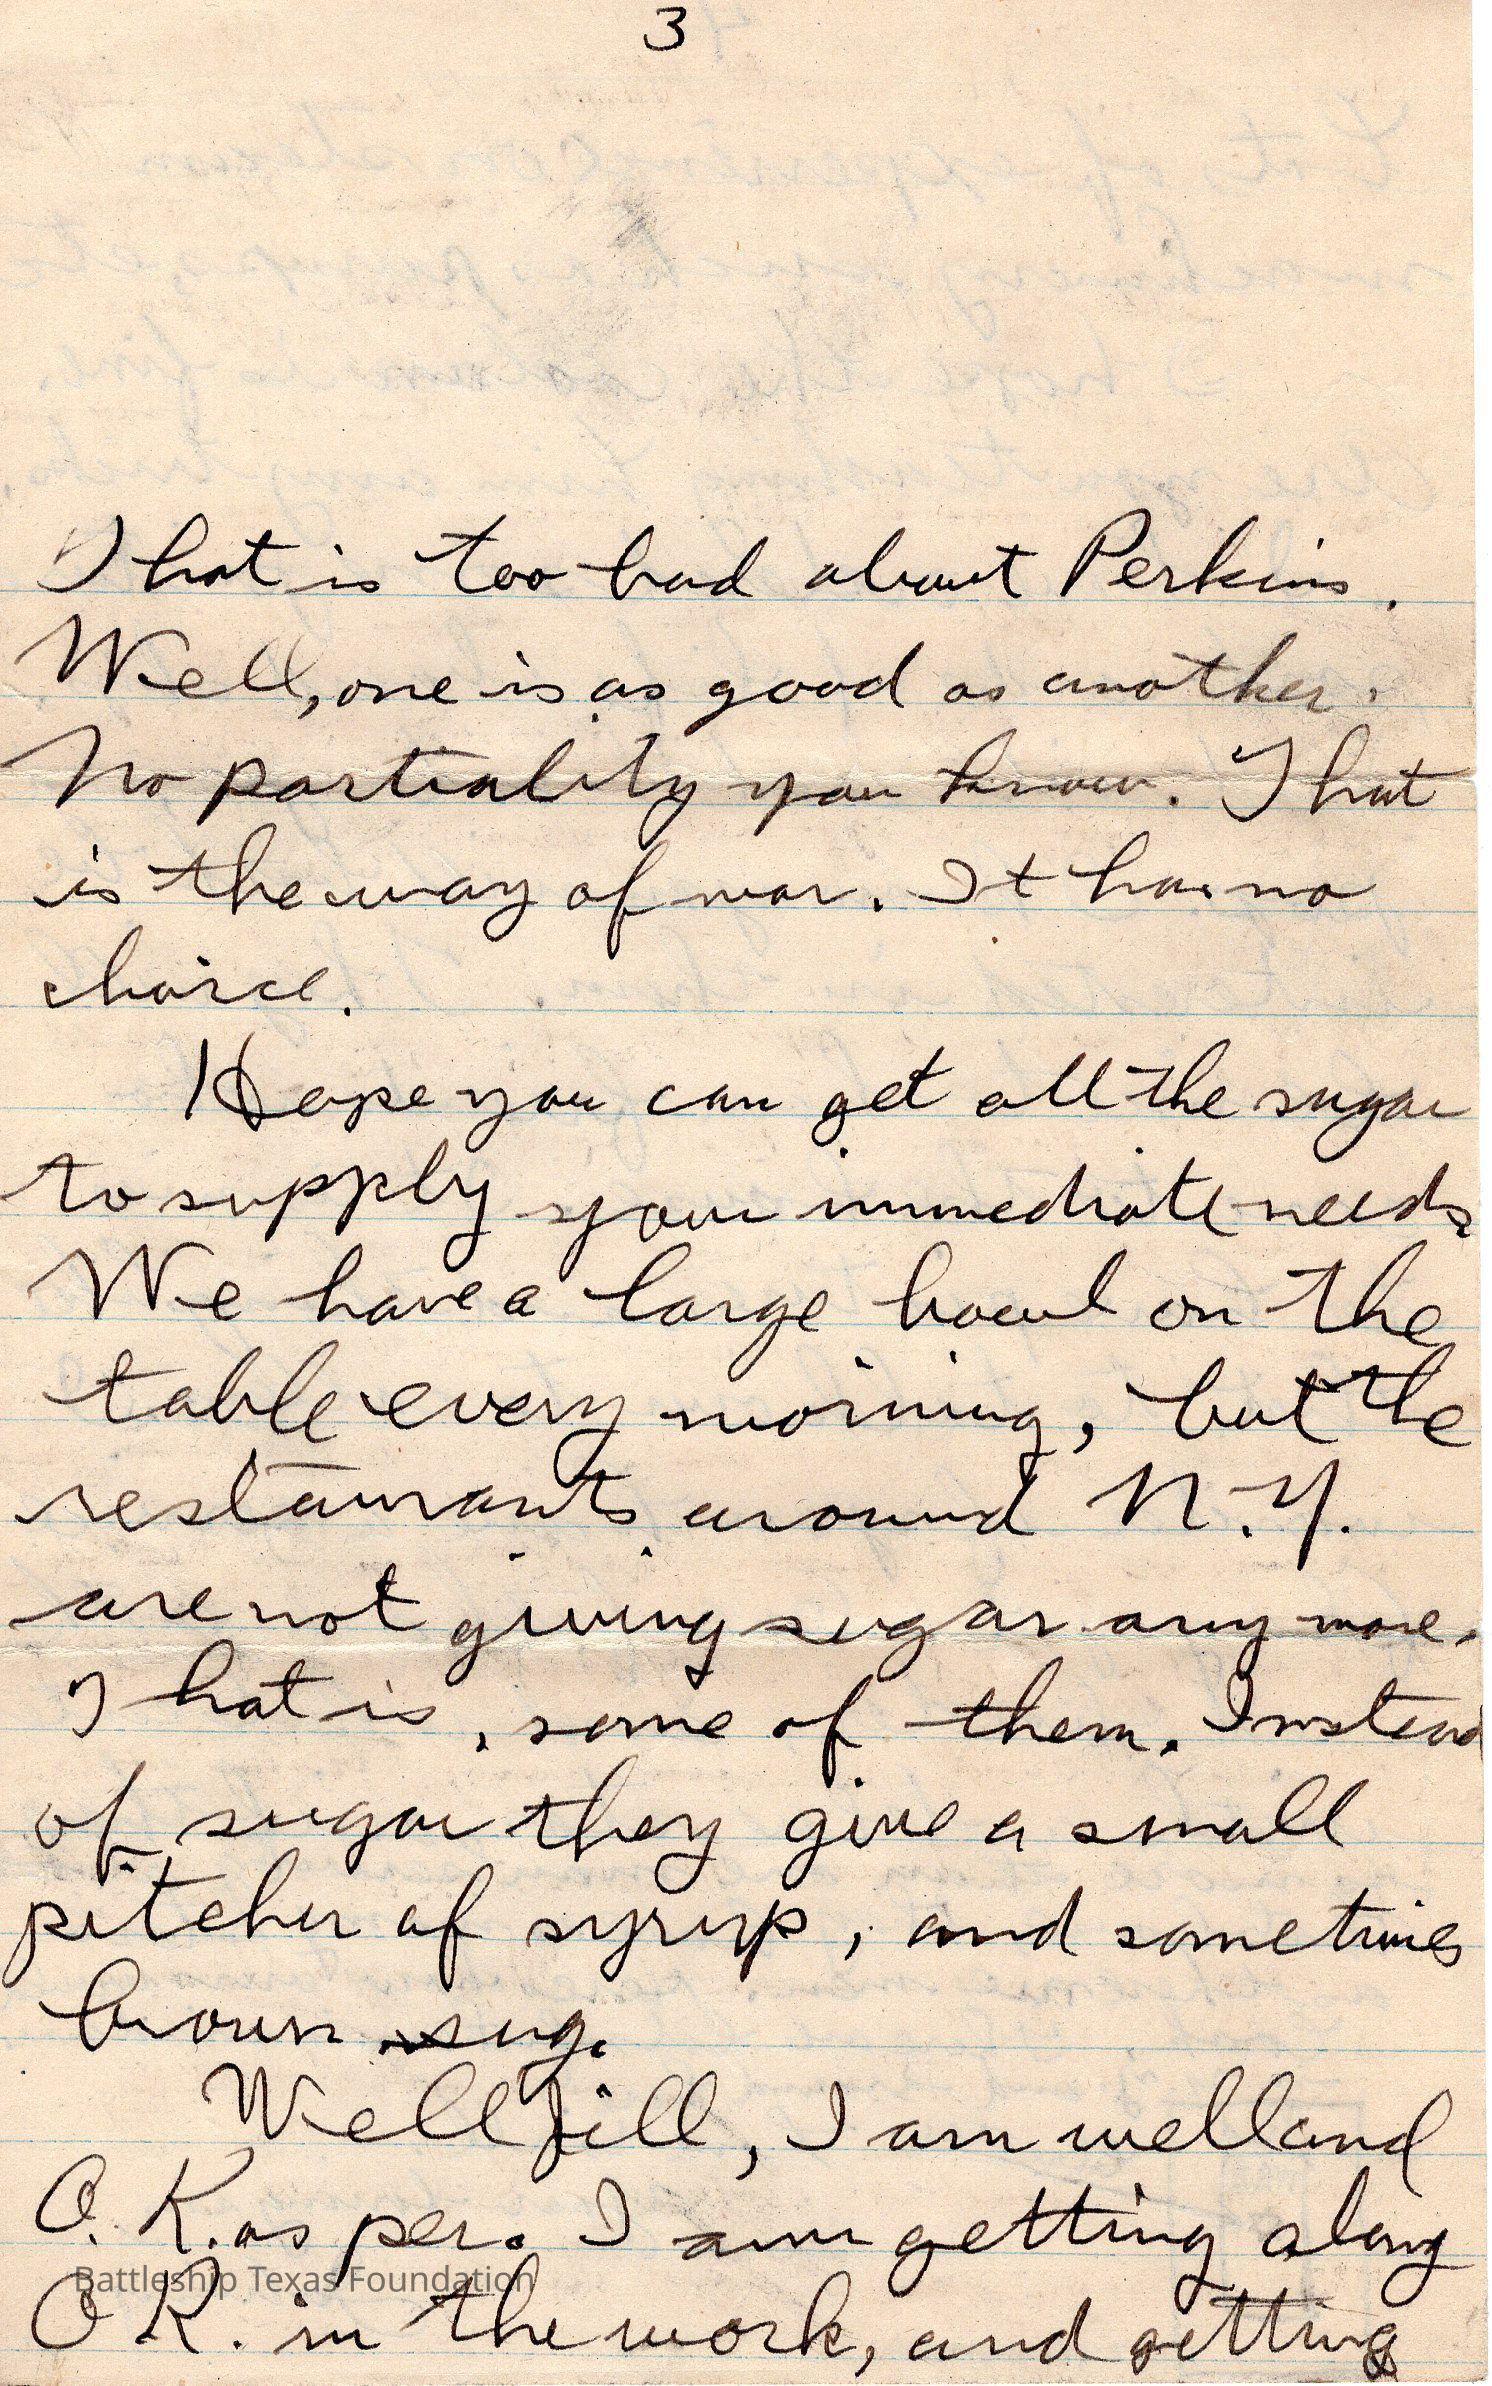 3
That is too bad about Perkins.
Well, one is as good as another.
No partiality you know. That
is the way of war. It has no
choice.
Hope you can get all the sugar
to supply your immediate needs
We have a large bowl on the
table every morning, but the
restaurants around N.Y.
are not giving sugar any more.
That is, some of them. Instead
of sugar they give a small
pitcher of syrup, and sometimes
brown sug.
Well Bill, I am well and
O.K. as per. I am getting along
O.K. in the work, and getting
Battleship Texas Foundation